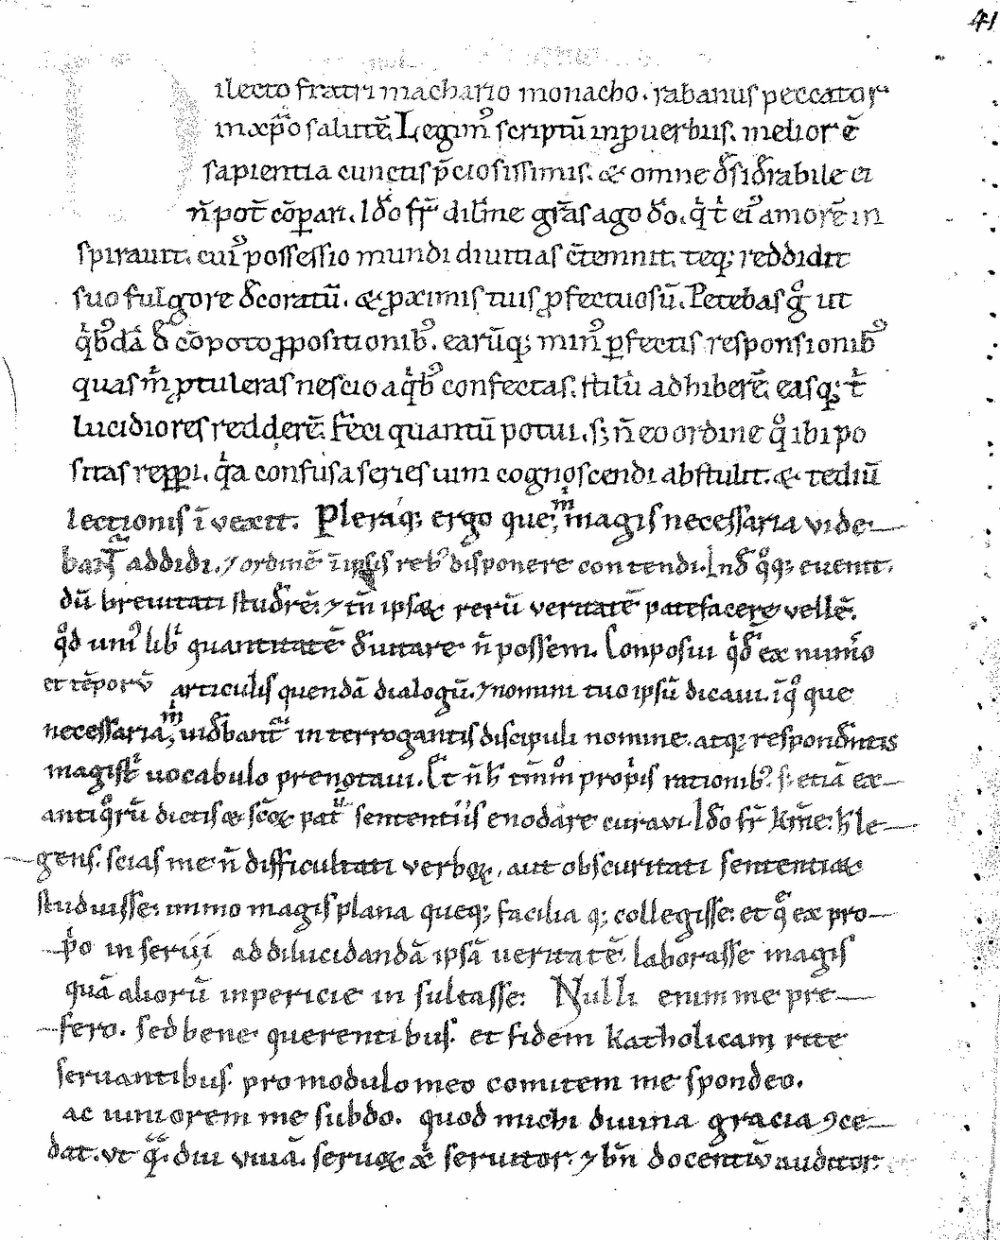 41
Dilecto fratri machario monacho. rabanus peccator
in xp̄o salutē. Legim᷒ scriptū in p̱uerbiis. melior ē
sapientia cunctis p̄ciosissimis. & omne dͦsidͦrabile ei
n̄ pot̄ cōparari. Idͦo fr̄ dilm̄e grās ago dͦo. qͥ t̄ ei᷒ amorē in
spirauit. cui᷒ possessio mundi diuitias c̄temnit. teq; reddidit
suo fulgore dͦcoratū. & proximis tuis profectuosū. Petebas gͦ ut
qͥb᷒dā dͦ cōpoto propositionib᷒. earūq; min᷒ perfectis responsionib᷒
quas m̄ p̱tuleras nescio a qͥb᷒ confectas. stilū adhiberē. easq; t̄
lucidiores redderē. Feci quantū potui. s; n̄ eo ordine qͦ ibi po
sitas repperi. qͥa confusa series uim cognoscendi abstulit. & tediū
lectionis īvexit. Pleraq; ergo que m̄ magis necessaria vide
bant᷒ addidi. ⁊ ordinē ī ipsis reb᷒ disponere contendi. Indͦ qͦq; euenit.
dū breuitati studͦrē. ⁊ tn̄ ipsaꝝ rerū veritatē patefacere vellē.
qͦd uni᷒ libͥ quantitatē dͦuitare n̄ possem. Conposui qͥdͦ ex numͦo
et tēporū articulis quendā dialogū. ⁊ nomini tuo ipsū dicaui. ī qͦ que
necessaria m̄ uidͦbant᷒ interrogantis discipuli nomine. atq; respondͦntis
magistͥ uocabulo prenotaui. Et n̄ h̄ tm̄mͦ propͥis rationib᷒. s; etiā ex
antiqͦrū dictis & sc̄oꝝ patͬ sententiis enodare curavi. Idͦo fr̄ km̄e. h̄ le
gens. scias me n̄ difficultati verboꝝ, aut obscuritati sententiaꝝ
studuisse. immo magis plana queq; facilia q; collegisse. et qͣ ex pro
pͥo inserui ad dilucidandā ipsā ueritatē. laborasse magis
quā aliorū inpericie insultasse. Nulli enim me pre
fero. sed bene querentibus. et fidem katholicam rite
seruantibus. pro modulo meo comitem me spondeo.
ac iuniorem me subdo. quod michi diuina gracia ↄce
dat. vt qͣ diu viuā. seruoꝝ xͥ seruitor. ⁊ bn̄ docentiū auditor.